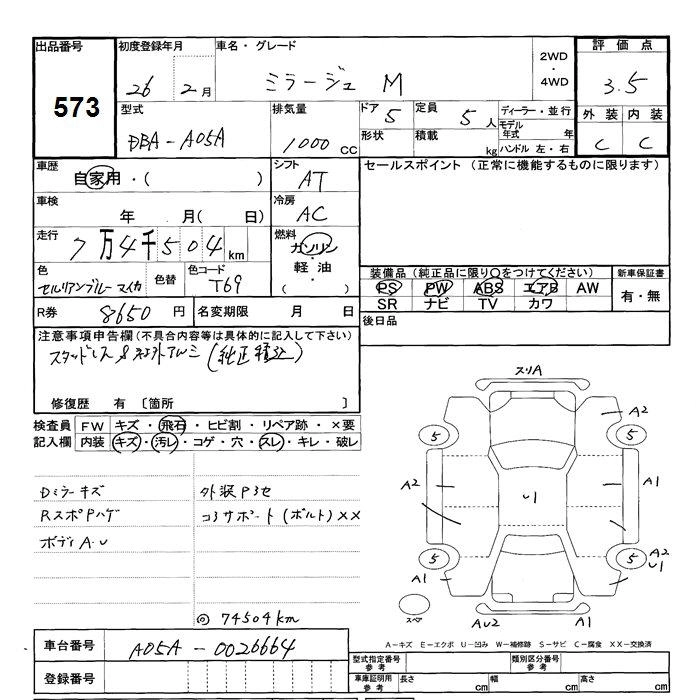 出品番号 初度登録年月 車名・グレード 評価点
573 26 2月 ミラージュ M 2WD・4WD 3.5
型式 排気量 ドア 5 定員 5人 ディーラー・並行 外装 内装
DBA-A05A 1000 CC 形状 積載 kg モデル年式 年 ハンドル 左・右 C C
車歴 シフト セールスポイント (正常に機能するものに限ります)
自家用・( ) AT
車検 冷房
年 月( 日) AC
走行 燃料
7万4千504km ガソリン・軽油・( )
色 色替 色コード 装備品(純正品に限り○をつけてください) 新車保証書
セルリアンブルーマイカ T69 PS PW ABS エアB AW 有・無
SR ナビ TV カワ
R券 8650円 名変期限 月 日 後日品
注意事項申告欄(不具合内容等は具体的に記入して下さい)
スタッドレス&社外アルミ(純正積込)
修復歴 有 〔箇所 〕
検査員 FW キズ・飛石・ヒビ割・リペア跡・×要
記入欄 内装 キズ・汚レ・コゲ・穴・スレ・キレ・破レ
Dミラーキズ 外装Pヨセ
RスポPハゲ コアサポート(ボルト)XX
ボディA・U
◎ 74504km
スリA
A2
5 5
A2 U1 A1
5 5 A2 U1
A1
スペア AU2 A1
車台番号 A05A-0026664
A-キズ E-エクボ U-凹み W-補修跡 S-サビ C-腐食 XX-交換済
登録番号
型式指定番号 参考 類別区分番号 参考
車庫証明用 参考 長さ cm 幅 cm 高さ cm